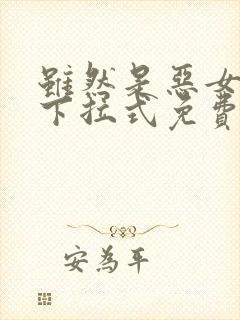 雖然是惡女
下拉式免費
安為平